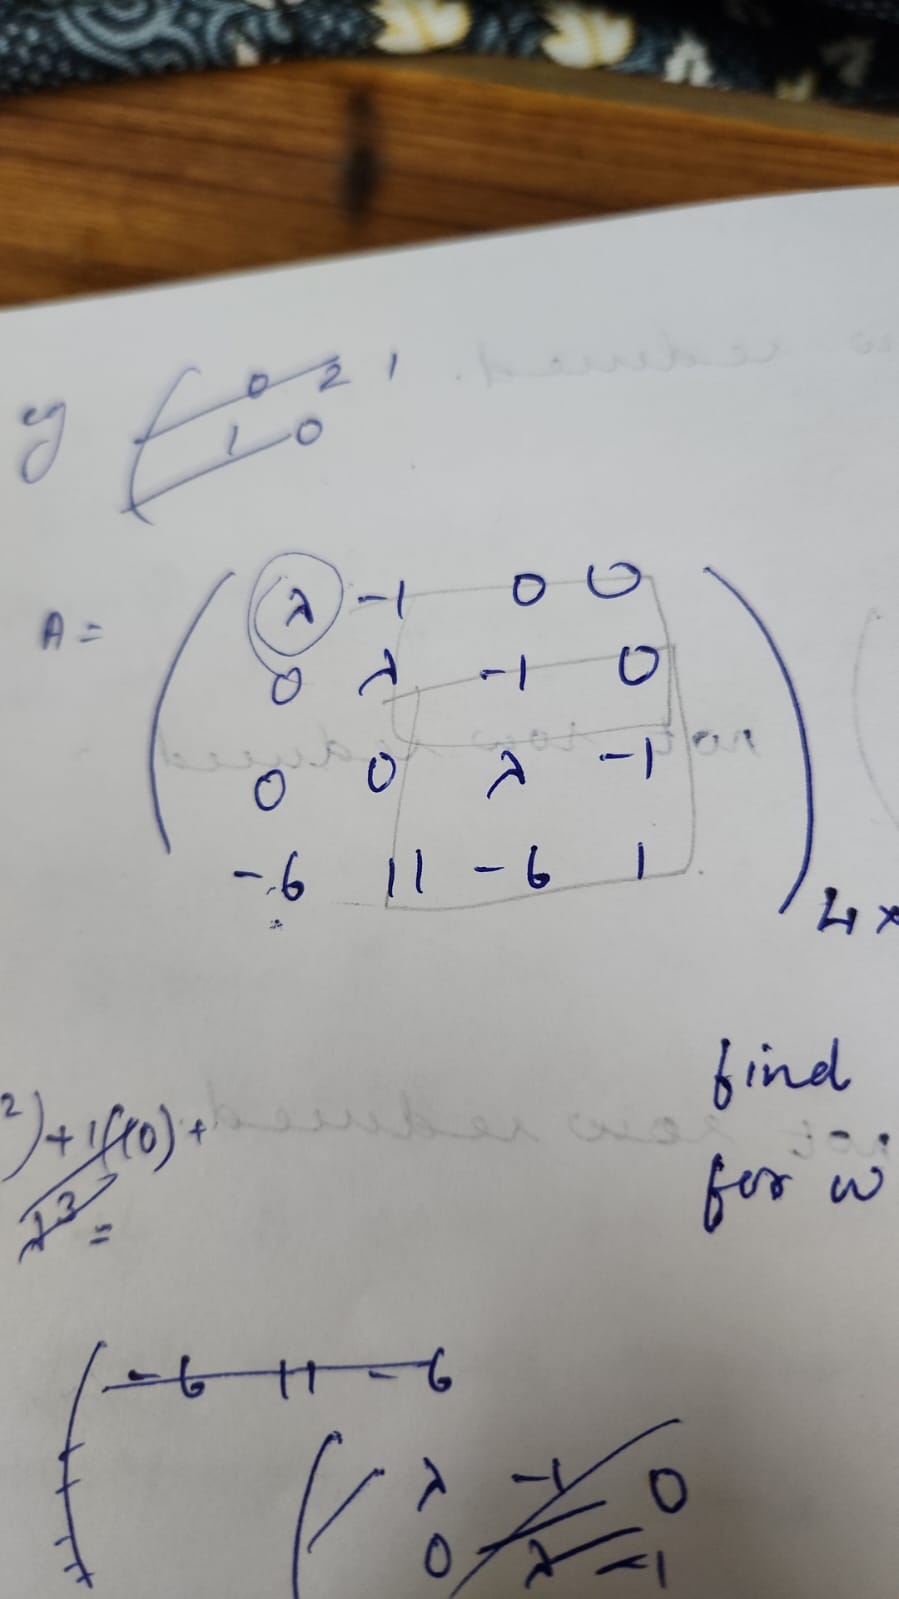 eg 0 2 1
1 0
A = ( λ -1 0 0
0 λ -1 0
0 0 λ -1
-6 11 -6 1 ) 4×
find
2) + 1(10) +
for w
λ3 =
( -6 11 -6
( λ -1 0
0 λ -1